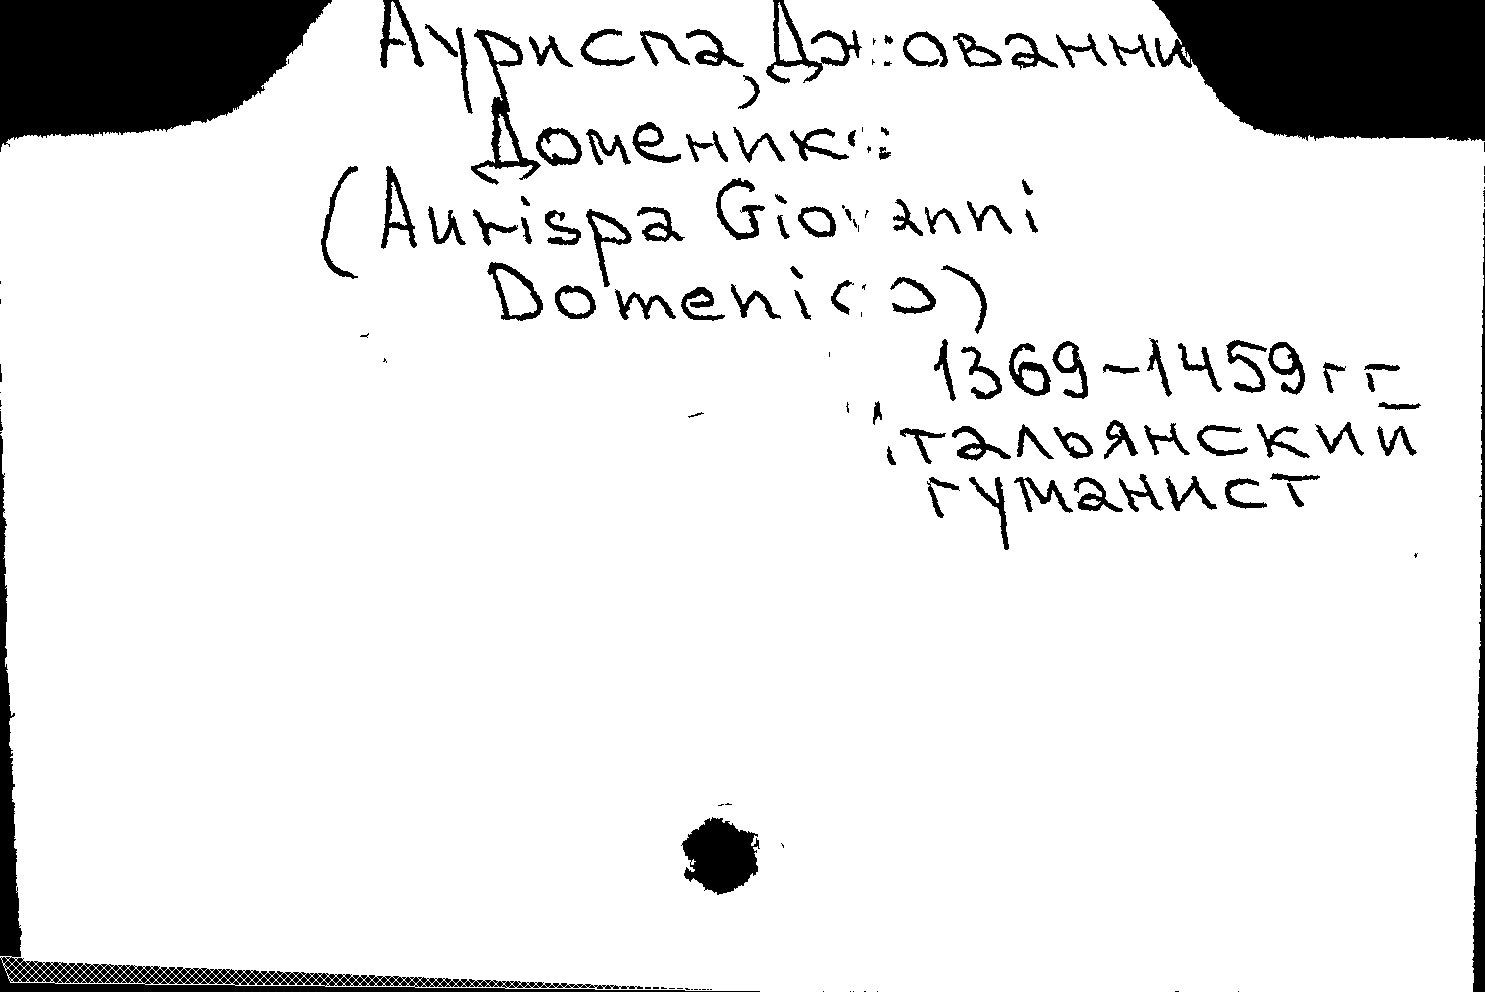 Ауриспа, Джованни
Доменико
(Aurispa Giovanni
Domenico)
1369-1459 гг
итальянский
гуманист